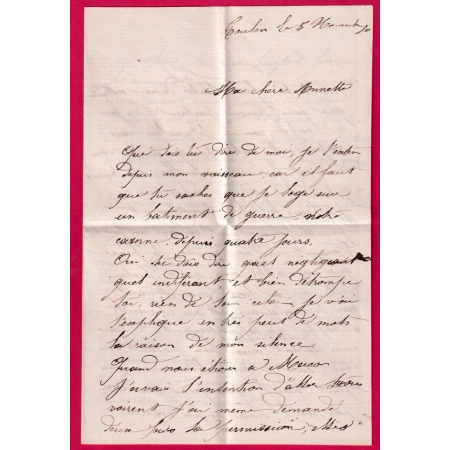 Toulon le 5 Novembre 70
Ma chère Annette
Que dois tu dire de moi, je t'entend
depuis mon vaisseau, car il faut
que tu saches que je loge sur
un batiment de guerre notre
caserne depuis quatre jours.
Ou tu dois dire quel negligeant
quel indiférant et bien détrompe
toi rien de tou cela je vai
t'esplique en très peut de mots
la raison de mon silence.
Quand nous étions a
J'avais l'intention d'aller
voirent, j'ai meme demandé
deux fois la permission, Mes